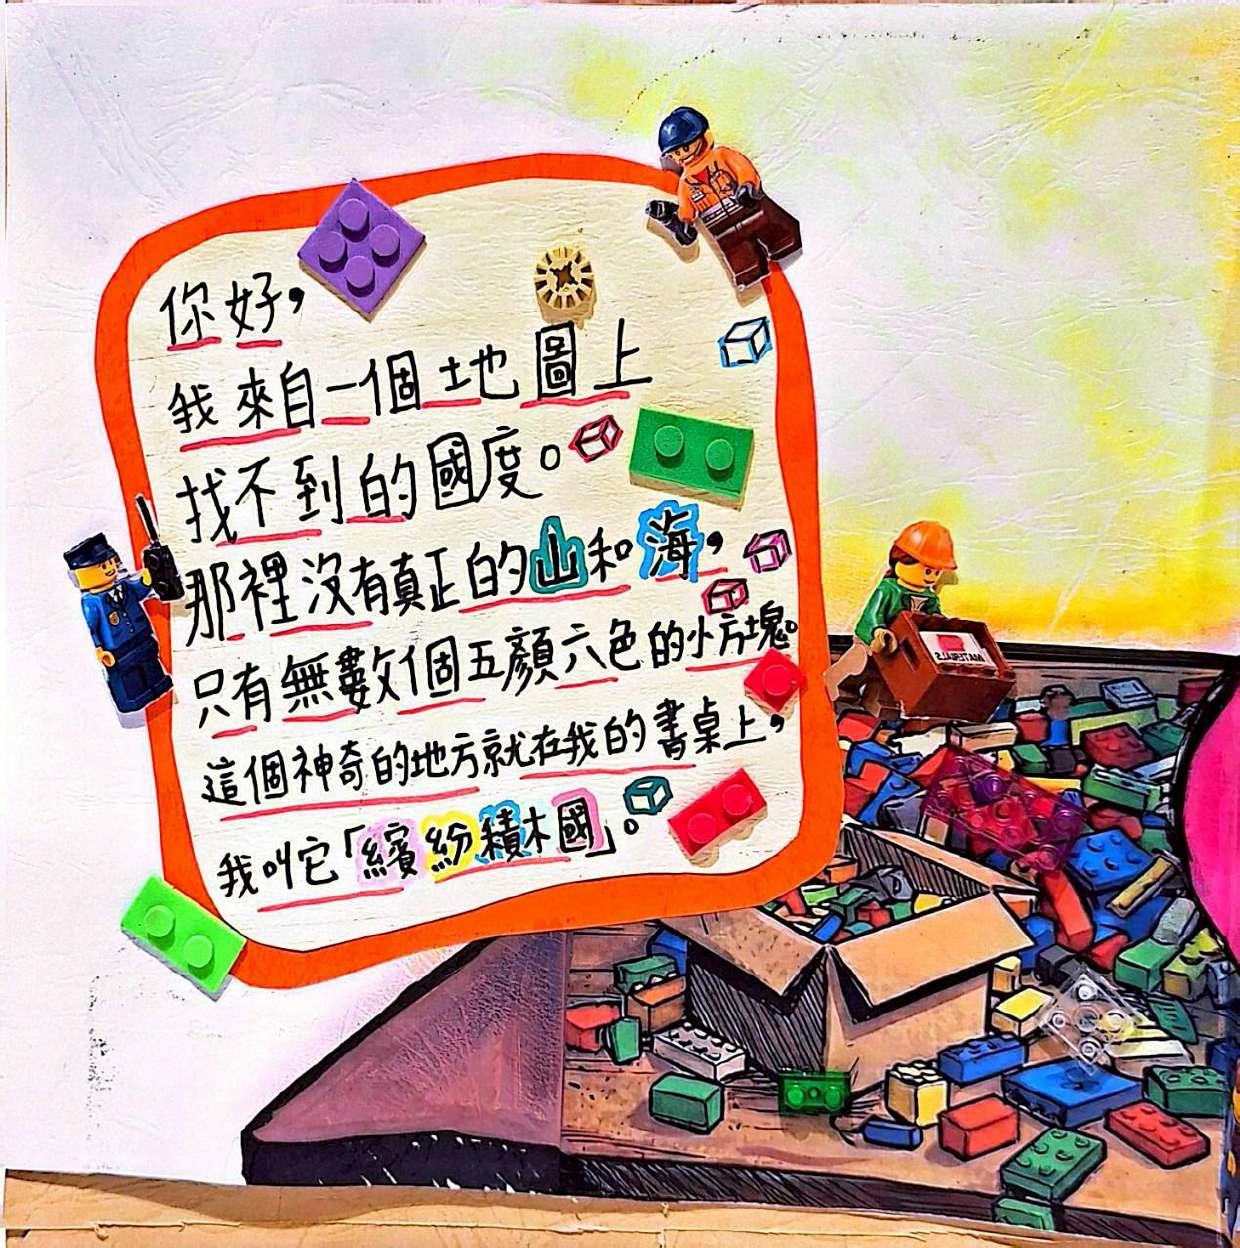 你好，
我來自一個土地圖上
找不到的國度。
那裡沒有真正的山和海，
只有無數個五顏六色的小方塊。
這個神奇的地方就在我的書桌上，
我叫它「繽紛積木國」。
MATERIALS